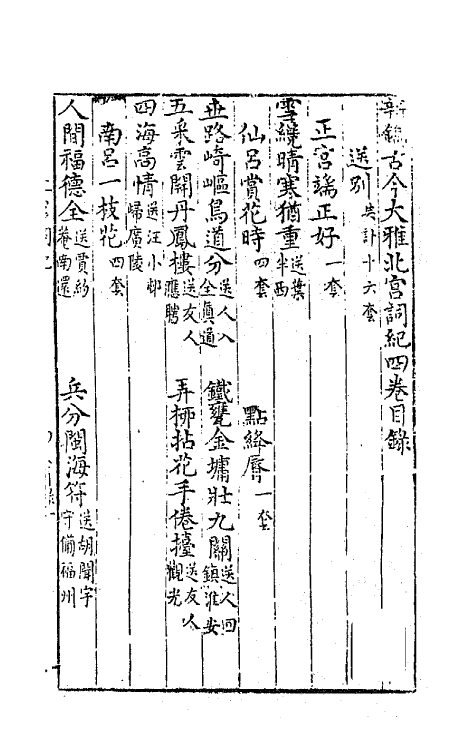 新鐫古今大雅北宮詞紀四卷目錄
送別 共計十六套
正宮端正好 一套
雪繞晴寒猶重 送葉半西
仙呂賞花時 四套 點絳唇 一套
世路崎嶇鳥道分 送人入全真道 鐵甕金墉壯九關 送人回鎮淮安
五采雲開丹鳳樓 送友人應聘 弄柳拈花手倦擡 送友人觀光
四海高情 送汪小邨歸廣陵
南呂一枝花 四套
人間福德全 送賞約菴南還 兵分閩海符 送胡閬宇守備福州